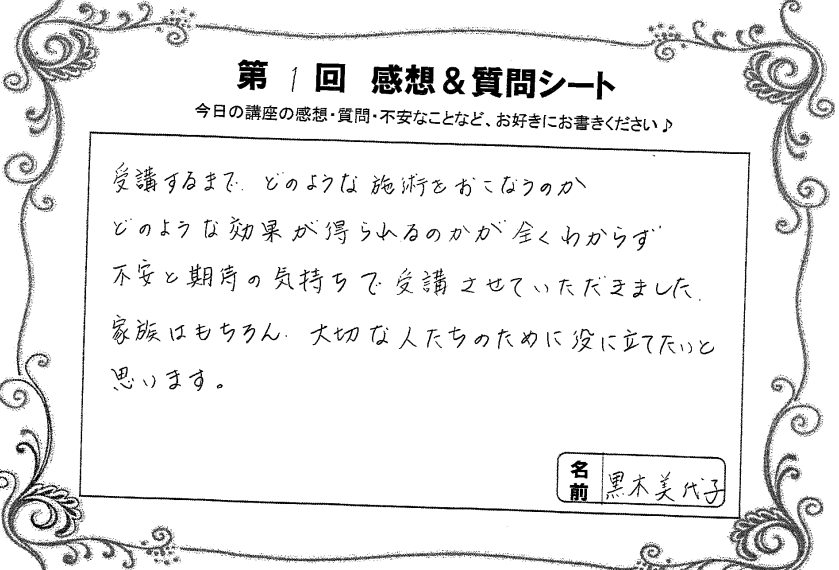 第 1 回 感想&質問シート
今日の講座の感想・質問・不安なことなど、お好きにお書きください♪
受講するまで、どのような施術をおこなうのか
どのような効果が得られるのかが全くわからず
不安と期待の気持ちで受講させていただきました。
家族はもちろん、大切な人たちのために役に立てたいと
思います。
名前 黒木美代子